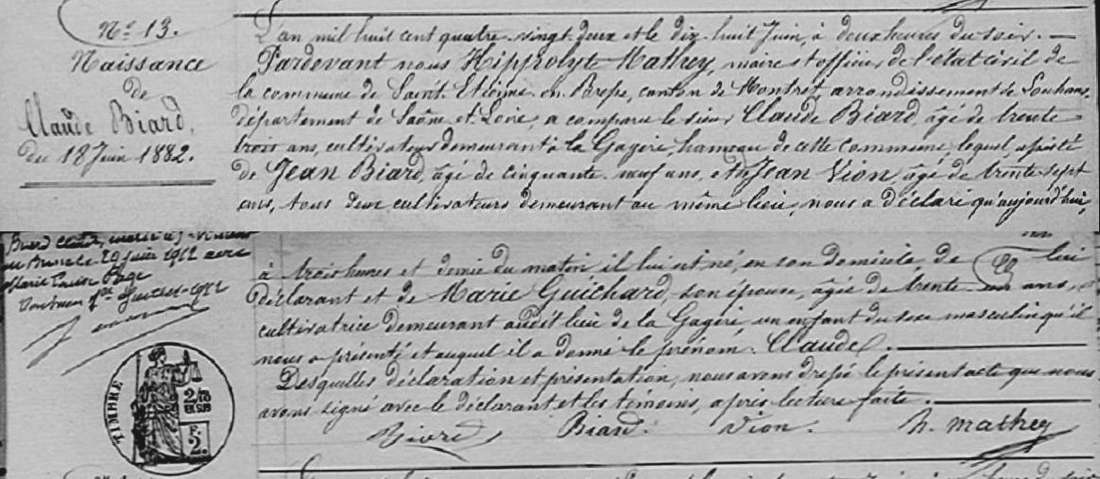 N° 13.
Naissance
de
Claude Biard,
du 18 Juin 1882.
L'an mil huit cent quatre-vingt-deux et le dix-huit Juin, à deux heures du soir. —
Pardevant nous Hippolyte Mathey, maire et officier de l'état civil de
la commune de Saint Etienne en Bresse, canton de Montret, arrondissement de Louhans,
département de Saône et Loire, a comparu le sieur Claude Biard, âgé de trente
trois ans, cultivateur demeurant à la Gagère, hameau de cette commune, lequel, assisté
de Jean Biard, âgé de cinquante-neuf ans, et de Jean Vion âgé de trente-sept
ans, tous deux cultivateurs demeurant au même lieu, nous a déclaré qu'aujourd'hui,
Biard Claude, marié à St Vincent
en Bresse le 29 juin 1912 avec
Marie Page
1912
à trois heures et demie du matin il lui est né, en son domicile de lui
déclarant et de Marie Guichard, son épouse, âgée de trente ans,
cultivatrice demeurant audit lieu de la Gagère un enfant du sexe masculin qu'il
nous a présenté et auquel il a donné le prénom. Claude.
Desquelles déclaration et présentation, nous avons dressé le présent acte que nous
avons signé avec le déclarant et les témoins, après lecture faite.
Biard Vion. h. Mathey
TIMBRE
2/10
EN SUS
2.